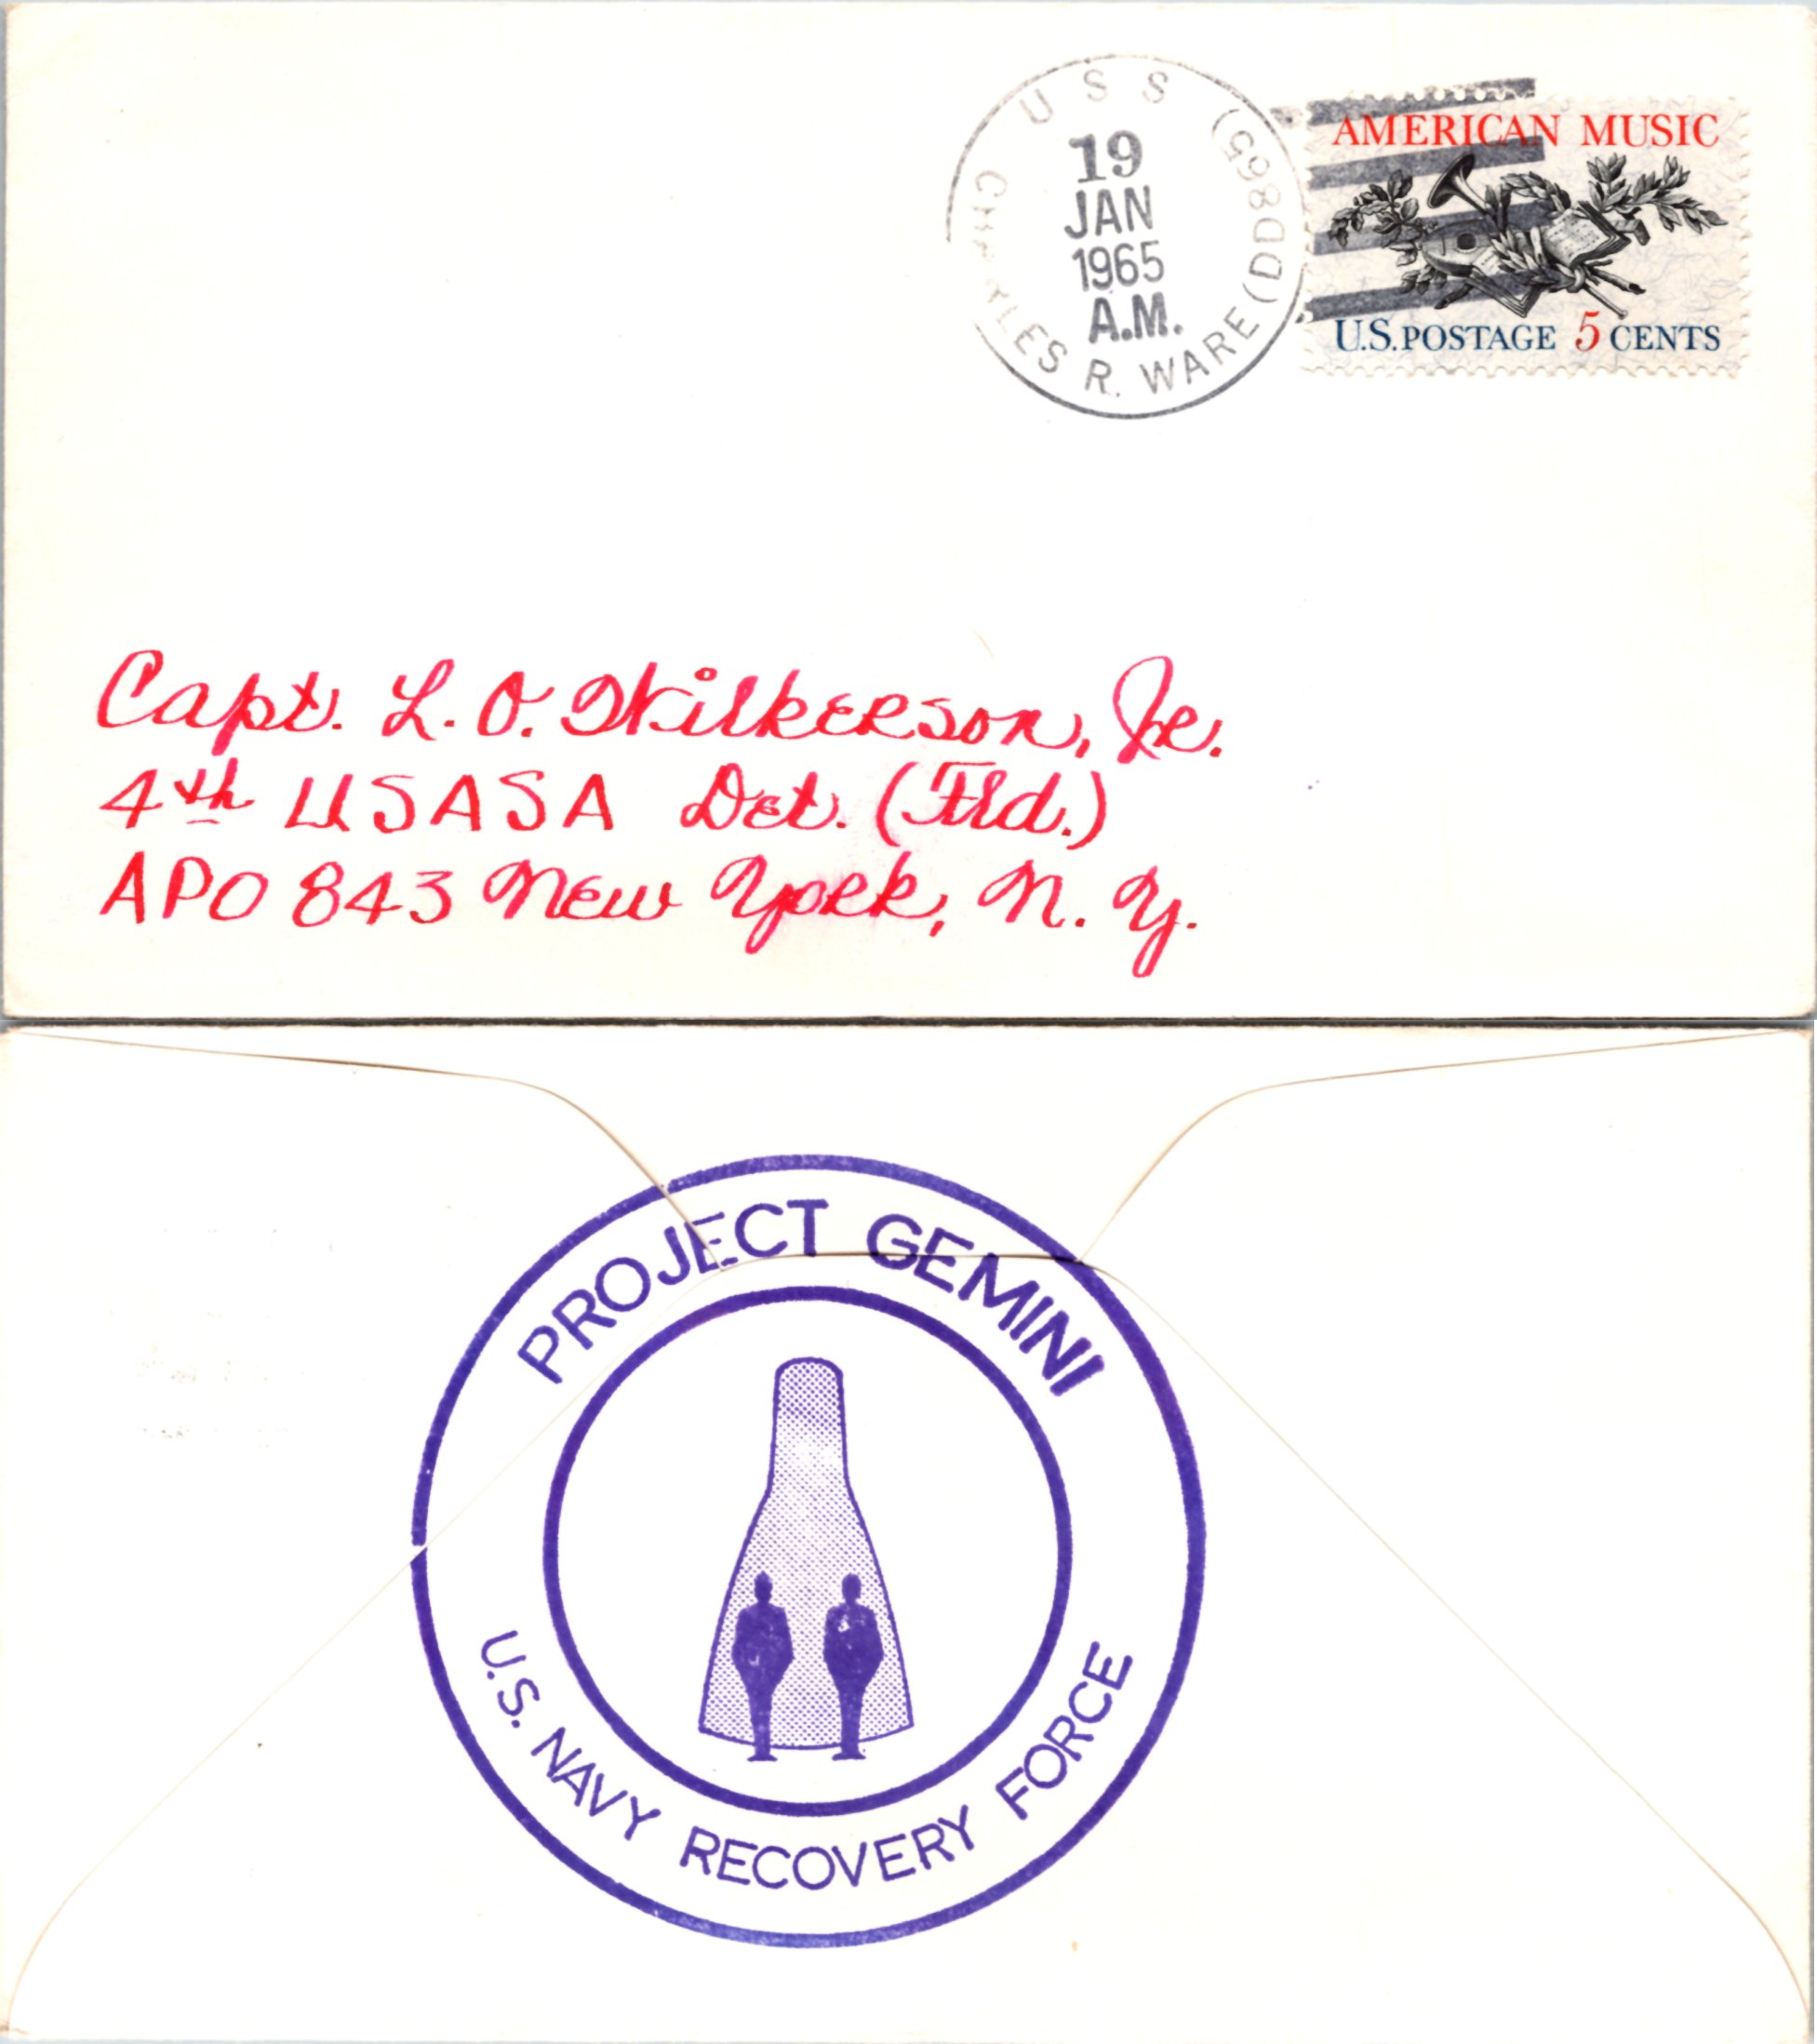 USS CHARLES R. WARE (DD865)
19
JAN
1965
A.M.
AMERICAN MUSIC
U.S. POSTAGE 5 CENTS
Capt. L. O. Wilkerson, Jr.
4th USASA Det. (Fld.)
APO 843 New York, N. Y.
PROJECT GEMINI
U.S. NAVY RECOVERY FORCE